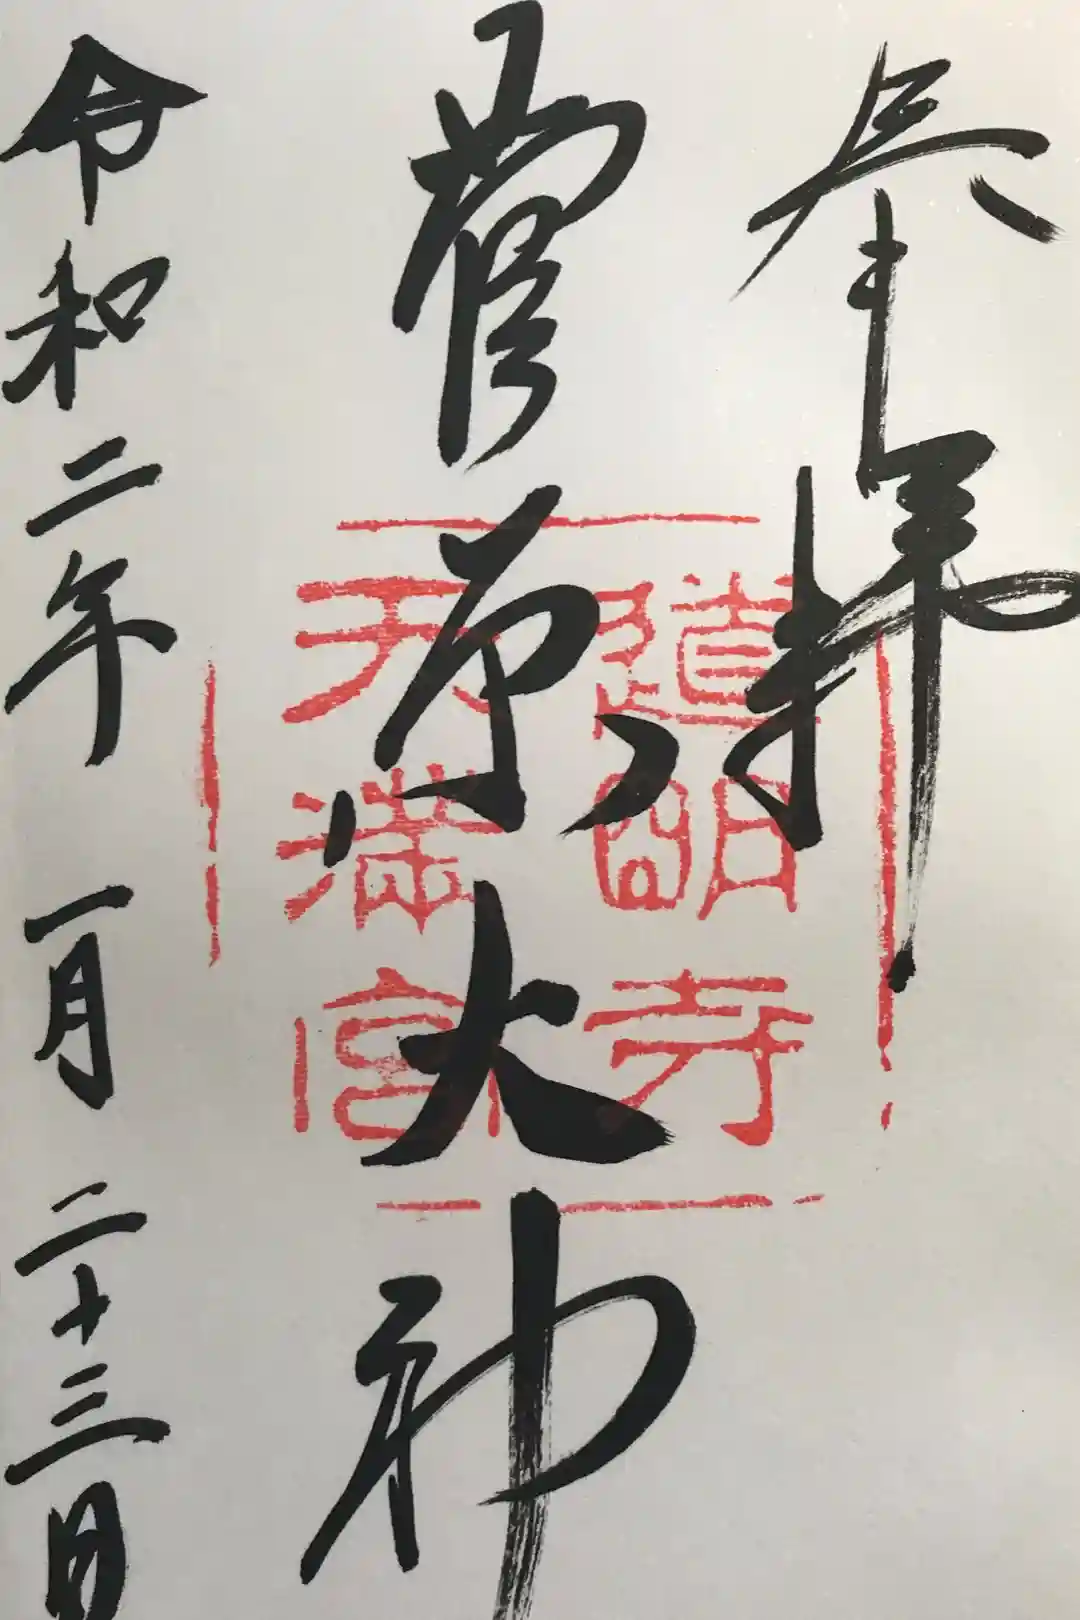 奉拝
菅原大神
道明寺
天満宮
令和二年一月二十三日